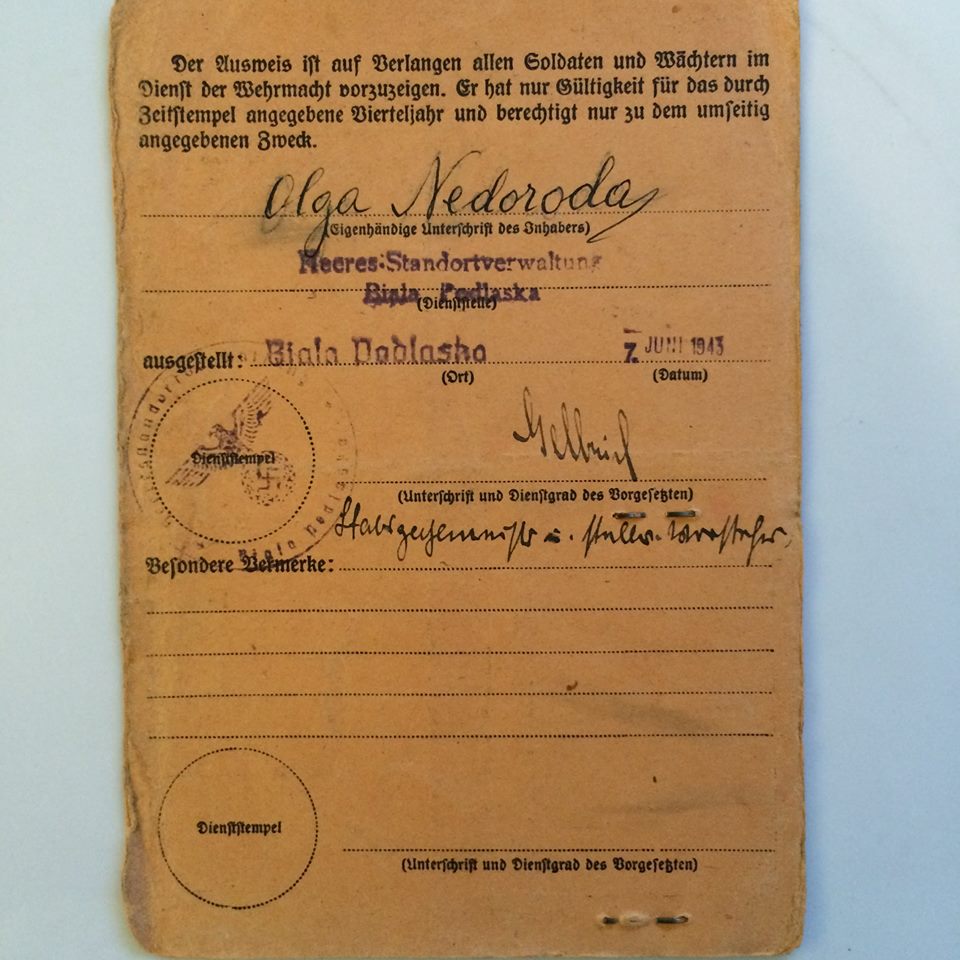 Der Ausweis ist auf Verlangen allen Soldaten und Wächtern im
Dienst der Wehrmacht vorzuzeigen. Er hat nur Gültigkeit für das durch
Zeitstempel angegebene Vierteljahr und berechtigt nur zu dem umseitig
angegebenen Zweck.
Olga Nedoroda
(Eigenhändige Unterschrift des Inhabers)
Heeres-Standortverwaltung
Biala Podlaska
(Dienststelle)
ausgestellt: Biala Podlaska 7. JUNI 1943
(Ort) (Datum)
Dienststempel
Biala Podlaska
(Unterschrift und Dienstgrad des Vorgesetzten)
Stabszahlmeister u. stellv. Vorsteher
Besondere Vermerke:
Dienststempel
(Unterschrift und Dienstgrad des Vorgesetzten)